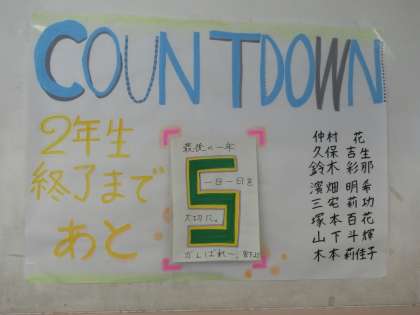 COUNTDOWN
2年生
終了まで
あと
最後の一年
5
一日一日を
大切に。
がんばれー。
仲村 花
久保 吉生
鈴木 彩那
濱畑 明希
三宅 莉功
塚本 百花
山下 斗輝
木本 莉佳子